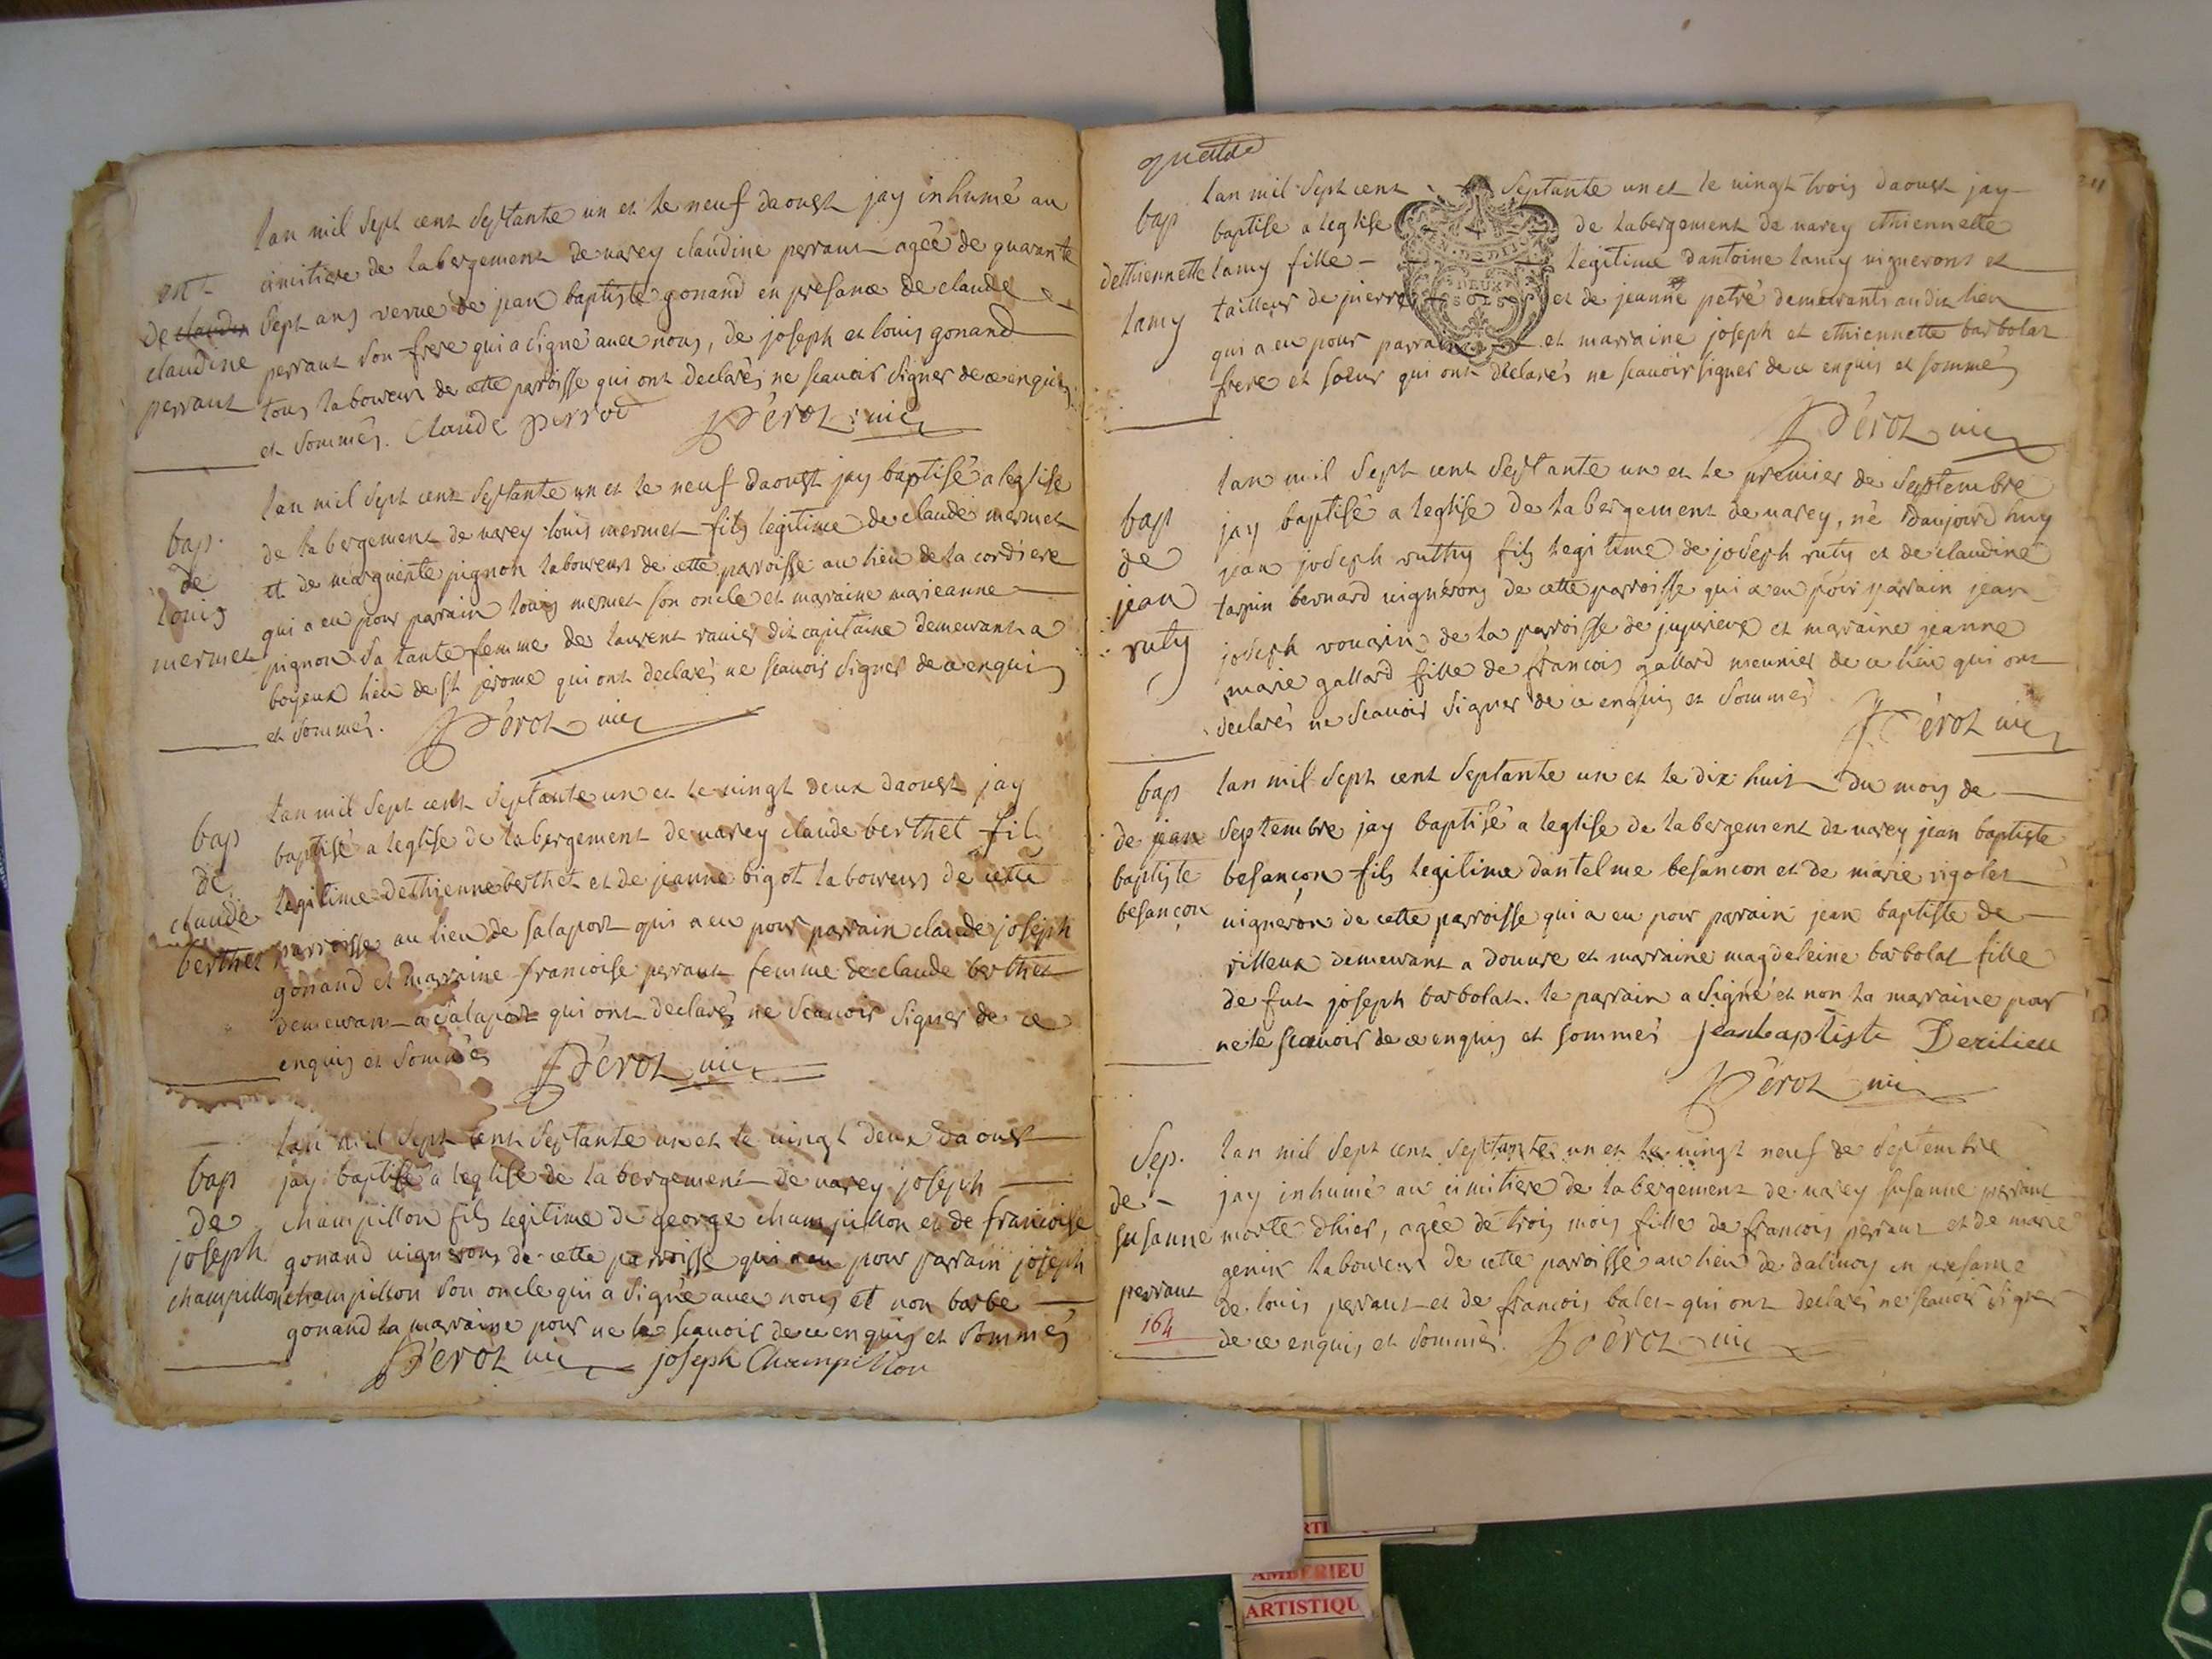 lan mil sept cent septante un et le neuf daoust jay inhumé au
cimitiere de labergement de varey claudine perraut agée de quarante
ent
de claudin sept ans veuve de jean baptiste gonand en presance de claude
claudine perraut son frere qui a signé avec nous, de joseph et louis gonand
perraut tous laboureurs de cette parroisse qui ont declarés ne scavoir signer de ce enquis
et sommés. Claude perrod Pérot vic
lan mil sept cent septante un et le neuf daoust jay baptisé a leglise
bap. de labergement de varey louis mermet fils legitime de claude mermet
de et de marguerite pignon laboureurs de cette parroisse au lieu de la cordiere
louis qui a eu pour parrain louis mermet son oncle et marraine marieanne
mermet pignon sa tante femme de laurent ravier dit capitaine demeurant a
boyeux lieu de st jerome qui ont declarés ne scavoir signer de ce enquis
et sommés. Pérot vic
lan mil sept cent septante un et le vingt deux daoust jay
bap baptisé a leglise de labergement de varey claude berthet fils
de legitime dethienne berthet et de jeanne bigot laboureurs de cette
claude parroisse au lieu de salaport qui a eu pour parrain claude joseph
berthet gonand et marraine francoise perraut femme de claude berthet
demeurant a salaport qui ont declarés ne scavoir signer de ce
enquis et sommés Pérot vic
lan mil sept cent septante un et le vingt deux daoust
bap jay baptisé a leglise de labergement de varey joseph
de champillon fils legitime de george champillon et de francoise
joseph gonand vignerons de cette parroisse qui a eu pour parrain joseph
champillon champillon son oncle qui a signé avec nous et non barbe
gonand la marraine pour ne le scavoir de ce enquis et sommés
Pérot vic joseph Champillon
quatre
lan mil sept cent septante un et le vingt trois daoust jay
bap baptise a leglise de labergement de varey ethiennette
dethiennette lamy fille legitime dantoine lamy vignerons et
lamy tailleur de pierre et de jeanne petré demeurants audit lieu
DEUX
SOLS
qui a eu pour parrain et marraine joseph et ethiennette barbolat
frere et soeur qui ont declarés ne scavoir signer de ce enquis et sommés
Pérot vic
lan mil sept cent septante un et le premier de septembre
bap jay baptisé a leglise de labergement de varey, né daujourd huy
de jean joseph ruthy fils legitime de joseph ruty et de claudine
jean tarpin bernard vignerons de cette parroisse qui a eu pour parrain jean
ruty joseph vouarin de la parroisse de jujurieux et marraine jeanne
marie gallard fille de francois gallard meunier de ce lieu qui ont
declarés ne scavoir signer de ce enquis et sommés
Pérot vic
bap lan mil sept cent septante un et le dix huit du mois de
de jean septembre jay baptisé a leglise de labergement de varey jean baptiste
baptiste besançon fils legitime dantelme besancon et de marie rigolet
besançon vigneron de cette parroisse qui a eu pour parrain jean baptiste de
rilleux demeurant a douvre et marraine magdeleine barbolat fille
de fut joseph barbolat. le parrain a signé et non la marraine pour
ne le scavoir de ce enquis et sommés jeanbaptiste Derilieu
Pérot vic
Sep. lan mil sept cent septante un et le vingt neuf de septembre
de jay inhumé au cimitiere de labergement de varey susanne perraut
susanne morte dhier, agée de trois mois fille de francois perraut et de marie
perraut genin laboureurs de cette parroisse au lieu de dalivoy en presance
de louis perraut et de francois balet qui ont declarés ne scavoir signer
164 de ce enquis et sommés. Pérot vic
AMBERIEU
ARTISTIQU